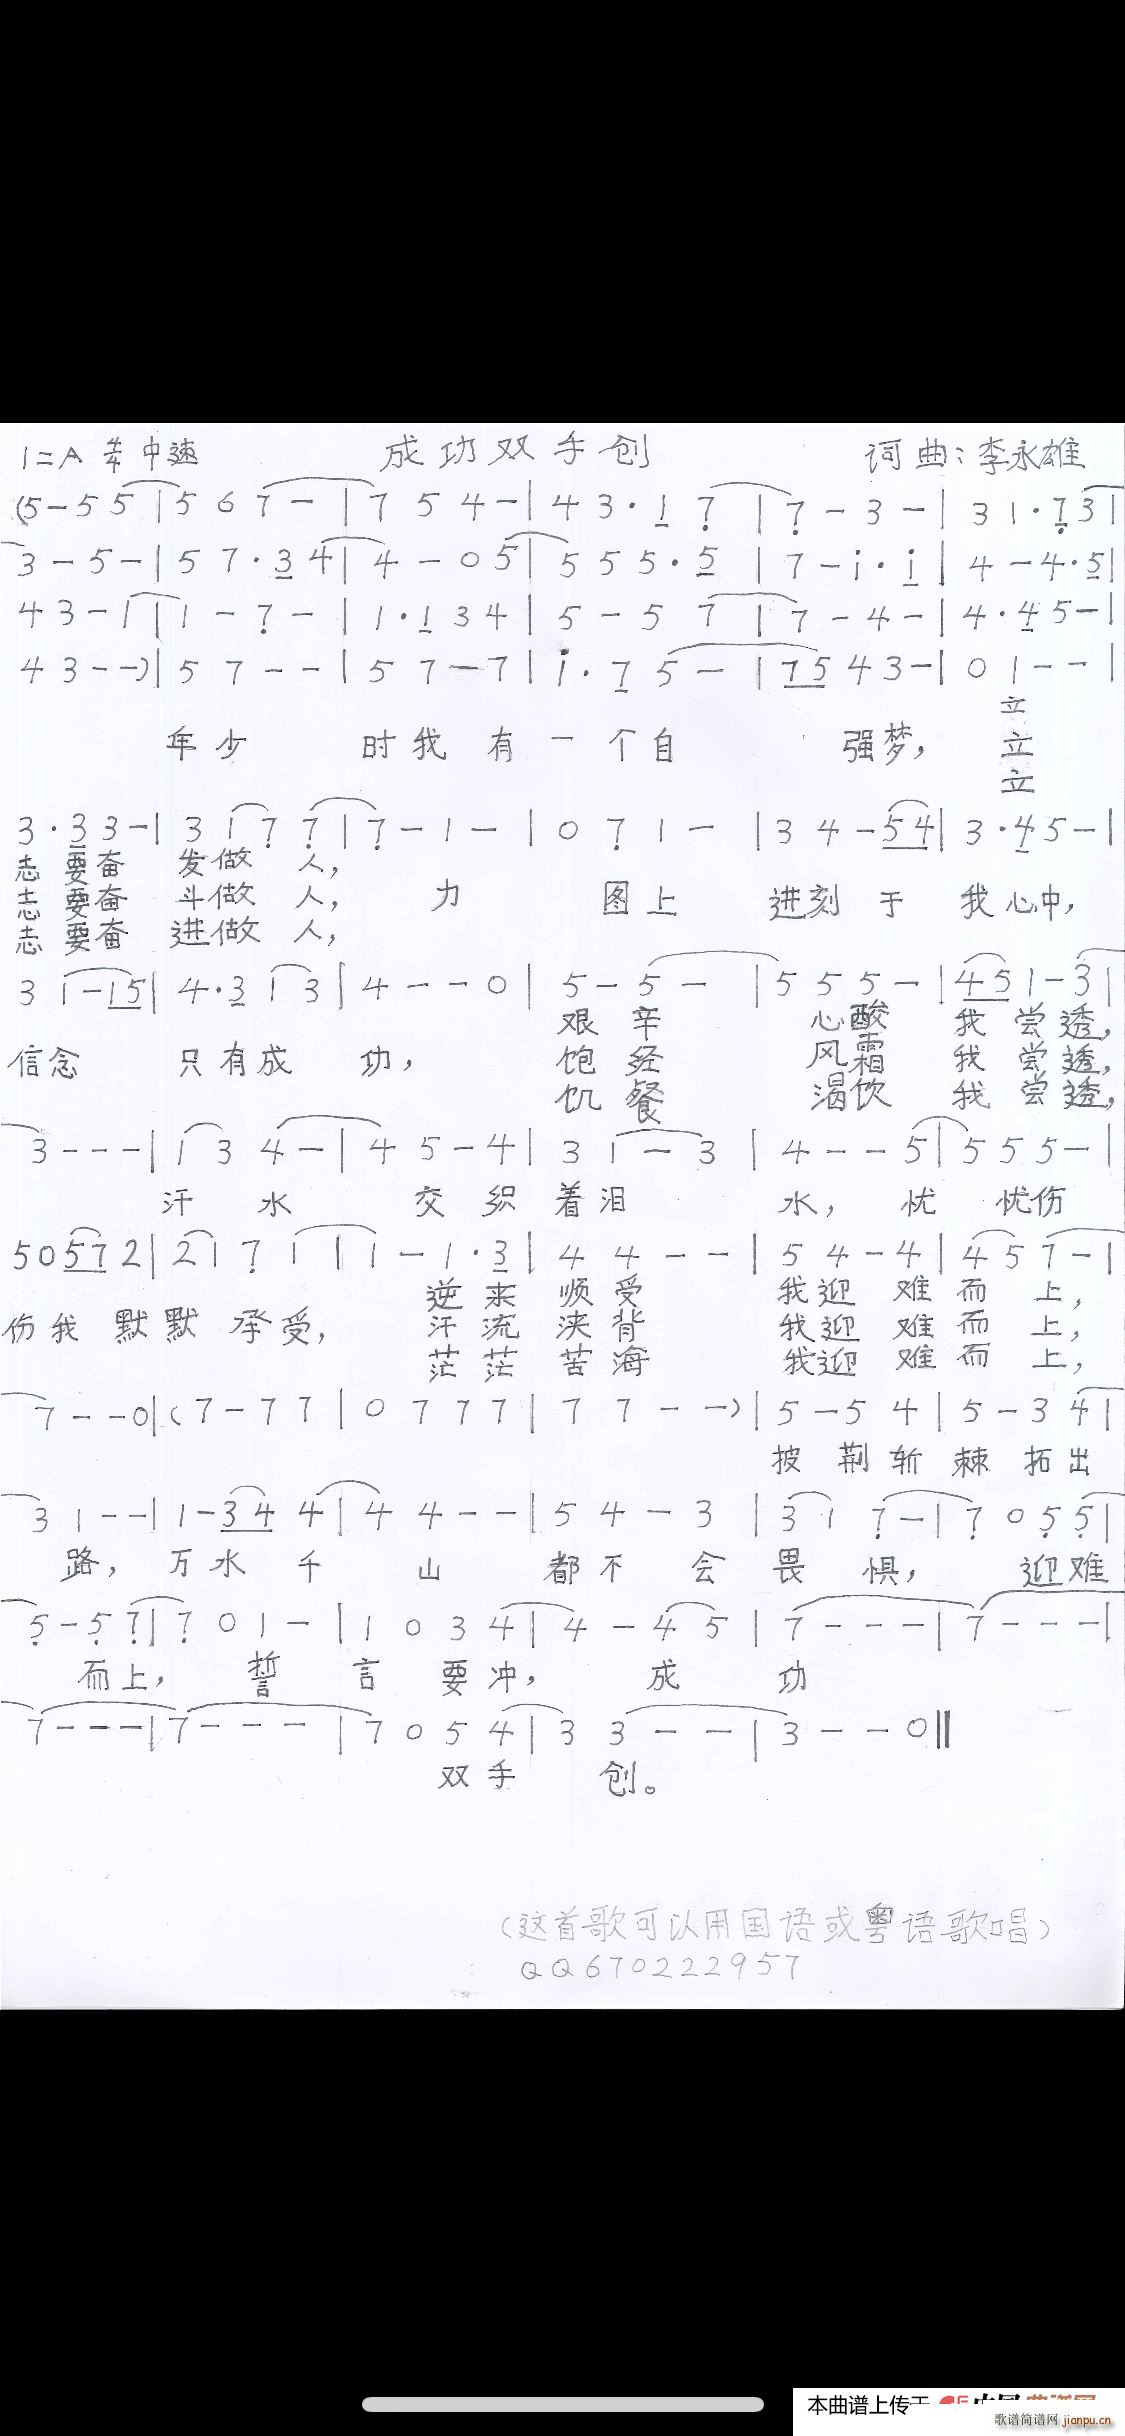 1=A 4/4 中速 成功双手创 词曲：李永雄
(5-55|567-|754-|43·17|7-3-|31·73|
3-5-|57·34|4-05|555·5|7-i·i|4-4·5|
43-1|1-7-|1·134|5-57|7-4-|4·45-|
43--)|57--|57-7|i·75-|7543-|01--|
立
年少 时我有一个自 强梦， 立
立
3·33-|3177|7-1-|071-|34-54|3·45-|
志要奋 发做人，
志要奋 斗做人， 力 图上 进刻于 我心中，
志要奋 进做人，
31-15|4·313|4--0|5-5-|555-|451-3|
艰辛 心酸 我尝透，
信念 只有成 功， 饱经 风霜 我尝透，
饥餐 渴饮 我尝透，
3---|134-|45-4|31-3|4--5|555-|
汗水 交织 着泪 水，忧 忧伤
50572|2171|1-1·3|44--|54-4|457-|
逆来 顺受 我迎难而上，
伤我默默承受， 汗流 浃背 我迎难而上，
茫茫 苦海 我迎难而上，
7--0|(7-77|0777|77--)|5-54|5-34|
披荆斩棘拓出
31--|1-344|44--|54-3|317-|7055|
路，万水千 山 都不会畏惧， 迎难
5-57|701-|1034|4-45|7---|7---|
而上， 誓 言要冲， 成 功
7---|7---|7054|33--|3--0‖
双手 创。
(这首歌可以用国语或粤语歌唱)
QQ670222957
本曲谱上传于
歌谱简谱网 jianpu.cn